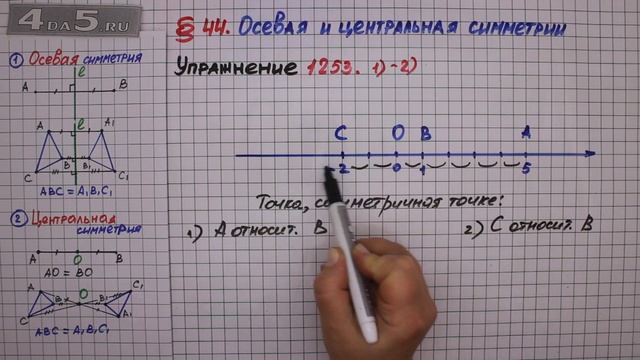 4DA5.RU
§ 44. Осевая и центральная симметрии
Упражнение 1253. 1)-2)
1 Осевая симметрия
l
A B
A l A1
C B B1 C1
ABC = A1B1C1
2 Центральная симметрия
A O B
AO = BO
A O C1
B B1
C A1
ABC = A1B1C1
C O B A
2 0 1 5
Точка, симметричная точке:
1) A относит. B 2) C относит. B